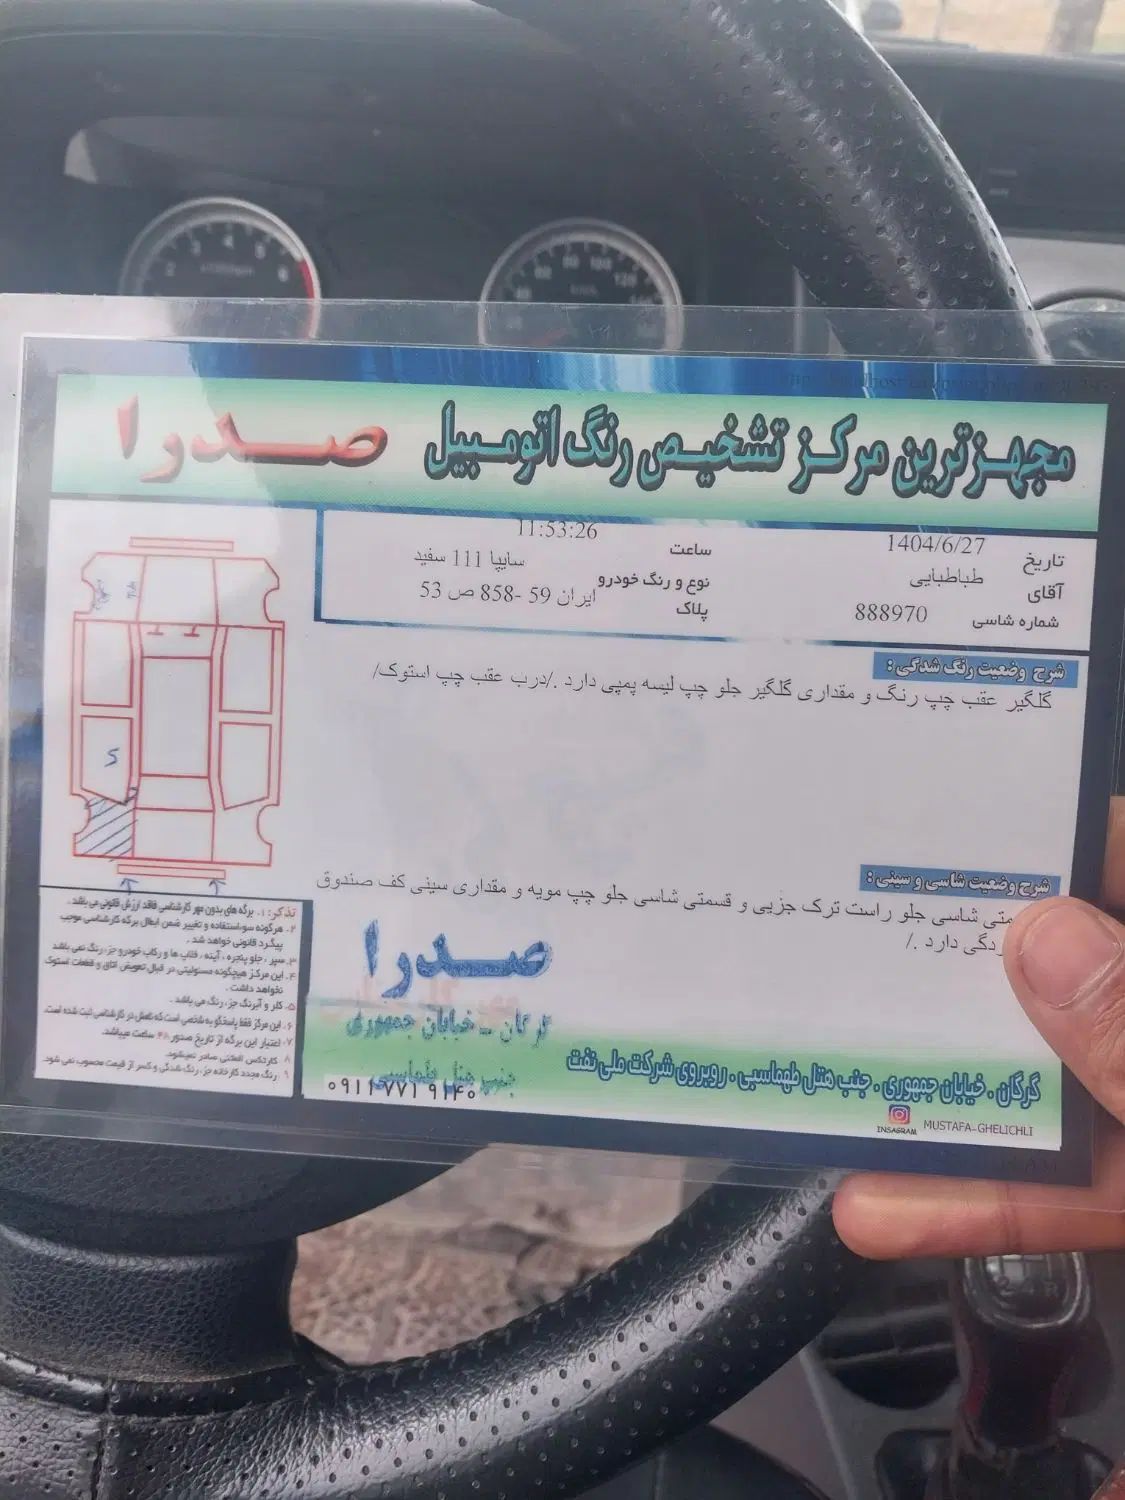 مجهزترین مرکز تشخیص رنگ اتومبیل صدرا
تاریخ 1404/6/27
ساعت 11:53:26
آقای طباطبایی
نوع و رنگ خودرو سایپا 111 سفید
شماره شاسی 888970
پلاک ایران 59 -858 ص 53
شرح وضعیت رنگ شدگی :
گلگیر عقب چپ رنگ و مقداری گلگیر جلو چپ لیسه پمپی دارد ./درب عقب چپ استوک/
S
شرح وضعیت شاسی و سینی :
شاسی جلو راست ترک جزیی و قسمتی شاسی جلو چپ مویه و مقداری سینی کف صندوق
دارد ./
تذکر: ۱. برگه های بدون مهر کارشناسی فاقد ارزش قانونی می باشد .
۲. هرگونه سواستفاده و تغییر ضمن ابطال برگه کارشناسی موجب
پیگرد قانونی خواهد شد .
۳. سپر ، جلو پنجره ، آینه ، قالپ ها و رکاب خودرو جز، رنگ نمی باشد
۴. این مرکز هیچگونه مسئولیتی در قبال تعویض اتاق و قطعات استوک
نخواهد داشت .
۵. کلر و آبرنگ جز، رنگ می باشد .
۶. این مرکز فقط پاسخگو به شخصی است که نامش در کارشناسی ثبت شده است.
۷. اعتبار این برگه از تاریخ صدور ۴۸ ساعت میباشد.
۸. کاردکس المثنی صادر نمیشود.
۹. رنگ مجدد کارخانه جز، رنگ شدگی و کسر از قیمت محسوب نمی شود.
صدرا
گرگان - خیابان جمهوری
جنب هتل طهماسبی
گرگان . خیابان جمهوری . جنب هتل طهماسبی . روبروی شرکت ملی نفت
۰۹۱۱۷۷۱۹۱۴۰
INSAGRAM MUSTAFA-GHELICHLI